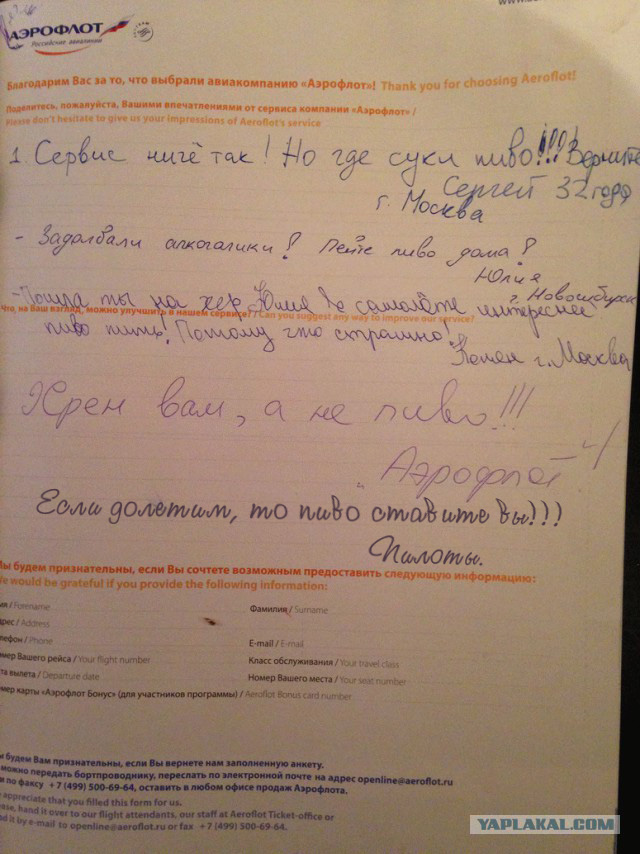 АЭРОФЛОТ
Российские авиалинии
Благодарим Вас за то, что выбрали авиакомпанию «Аэрофлот»! Thank you for choosing Aeroflot!
Поделитесь, пожалуйста, Вашими впечатлениями от сервиса компании «Аэрофлот» /
Please don't hesitate to give us your impressions of Aeroflot's service
1. Сервис ничё так! Но где сука пиво!!!! Верните
Сергей 32 года
г. Москва
- Задолбали алкоголики! Пейте пиво дома!
Юлия
г. Новосибирск
- Пошла ты на хер Юлия! в самолёте интереснее
Что, на Ваш взгляд, можно улучшить в нашем сервисе? / Can you suggest any way to improve our service?
пиво пить! Потому что страшно!
г. Москва
Хрен вам, а не пиво!!!
"Аэрофлот"
Если долетим, то пиво ставите вы!!!
Пилоты.
Мы будем признательны, если Вы сочтете возможным предоставить следующую информацию:
We would be grateful if you provide the following information:
мя / Forename Фамилия / Surname
дрес / Address
лефон / Phone E-mail / E-mail
омер Вашего рейса / Your flight number Класс обслуживания / Your travel class
та вылета / Departure date Номер Вашего места / Your seat number
мер карты «Аэрофлот Бонус» (для участников программы) / Aeroflot Bonus card number
ы будем Вам признательны, если Вы вернете нам заполненную анкету.
можно передать бортпроводнику, переслать по электронной почте на адрес openline@aeroflot.ru
и по факсу +7 (499) 500-69-64, оставить в любом офисе продаж Аэрофлота.
e appreciate that you filled this form for us.
ease, hand it over to our flight attendants, our staff at Aeroflot Ticket-office or
nd it by e-mail to openline@aeroflot.ru or fax +7 (499) 500-69-64.
YAPLAKAL.COM